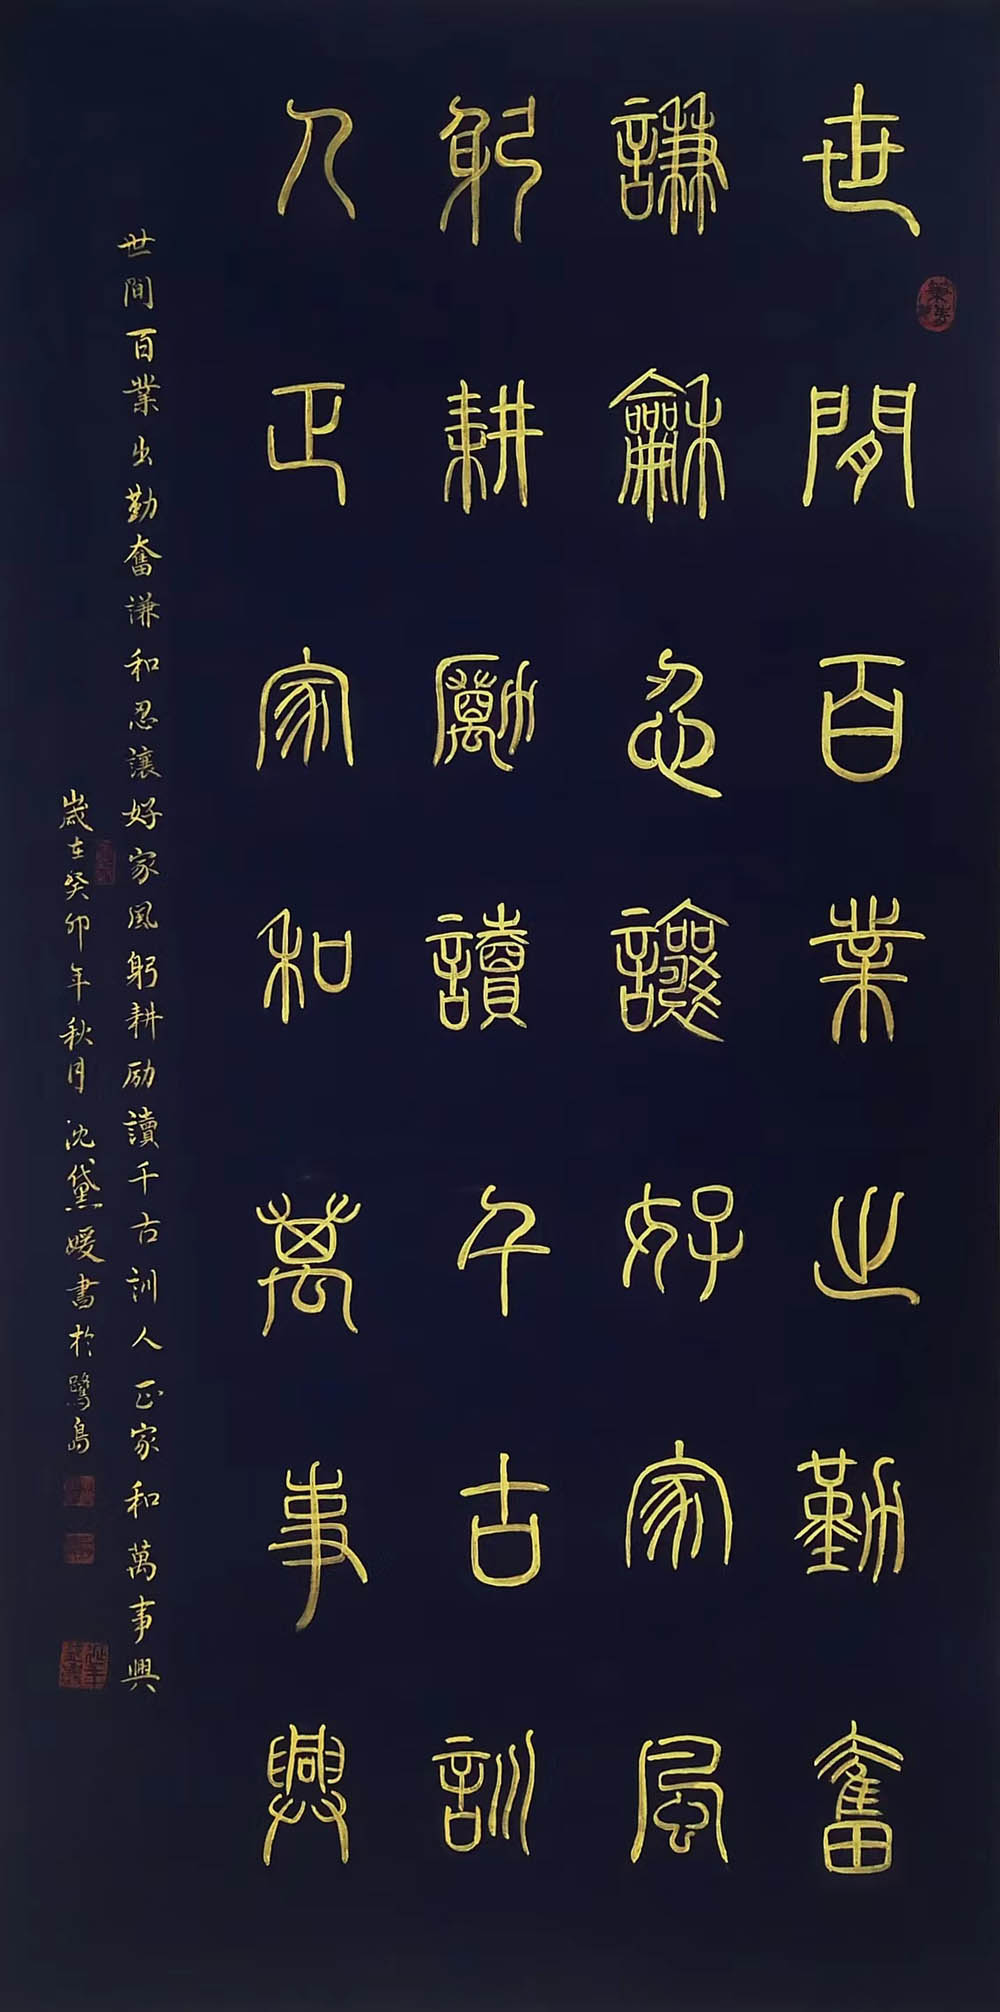 世閒百業出勤奮
謙龢忍讓好家風
躬耕勵讀千古訓
人正家和萬事興
世間百業出勤奮謙和忍讓好家風躬耕励讀千古訓人正家和萬事興
歲在癸卯年秋月沈黛媛書於鷺島